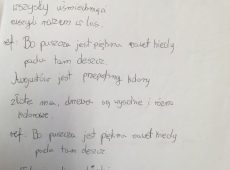 wszyscy uśmiechnięci
ruszyli razem w las.
ref: Bo puszcza jest piękna nawet kiedy
pada tam deszcz.
Augustów jest przepiękny
złote ma, drzewa są wysokie i
kolorowe.
ref. Bo puszcza jest piękna nawet kiedy
pada tam deszcz